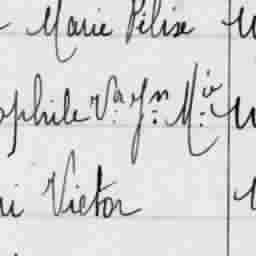 Marie Pélixe
ophile Vᵃ Jⁿ Mⁱᵉ
ri Victor